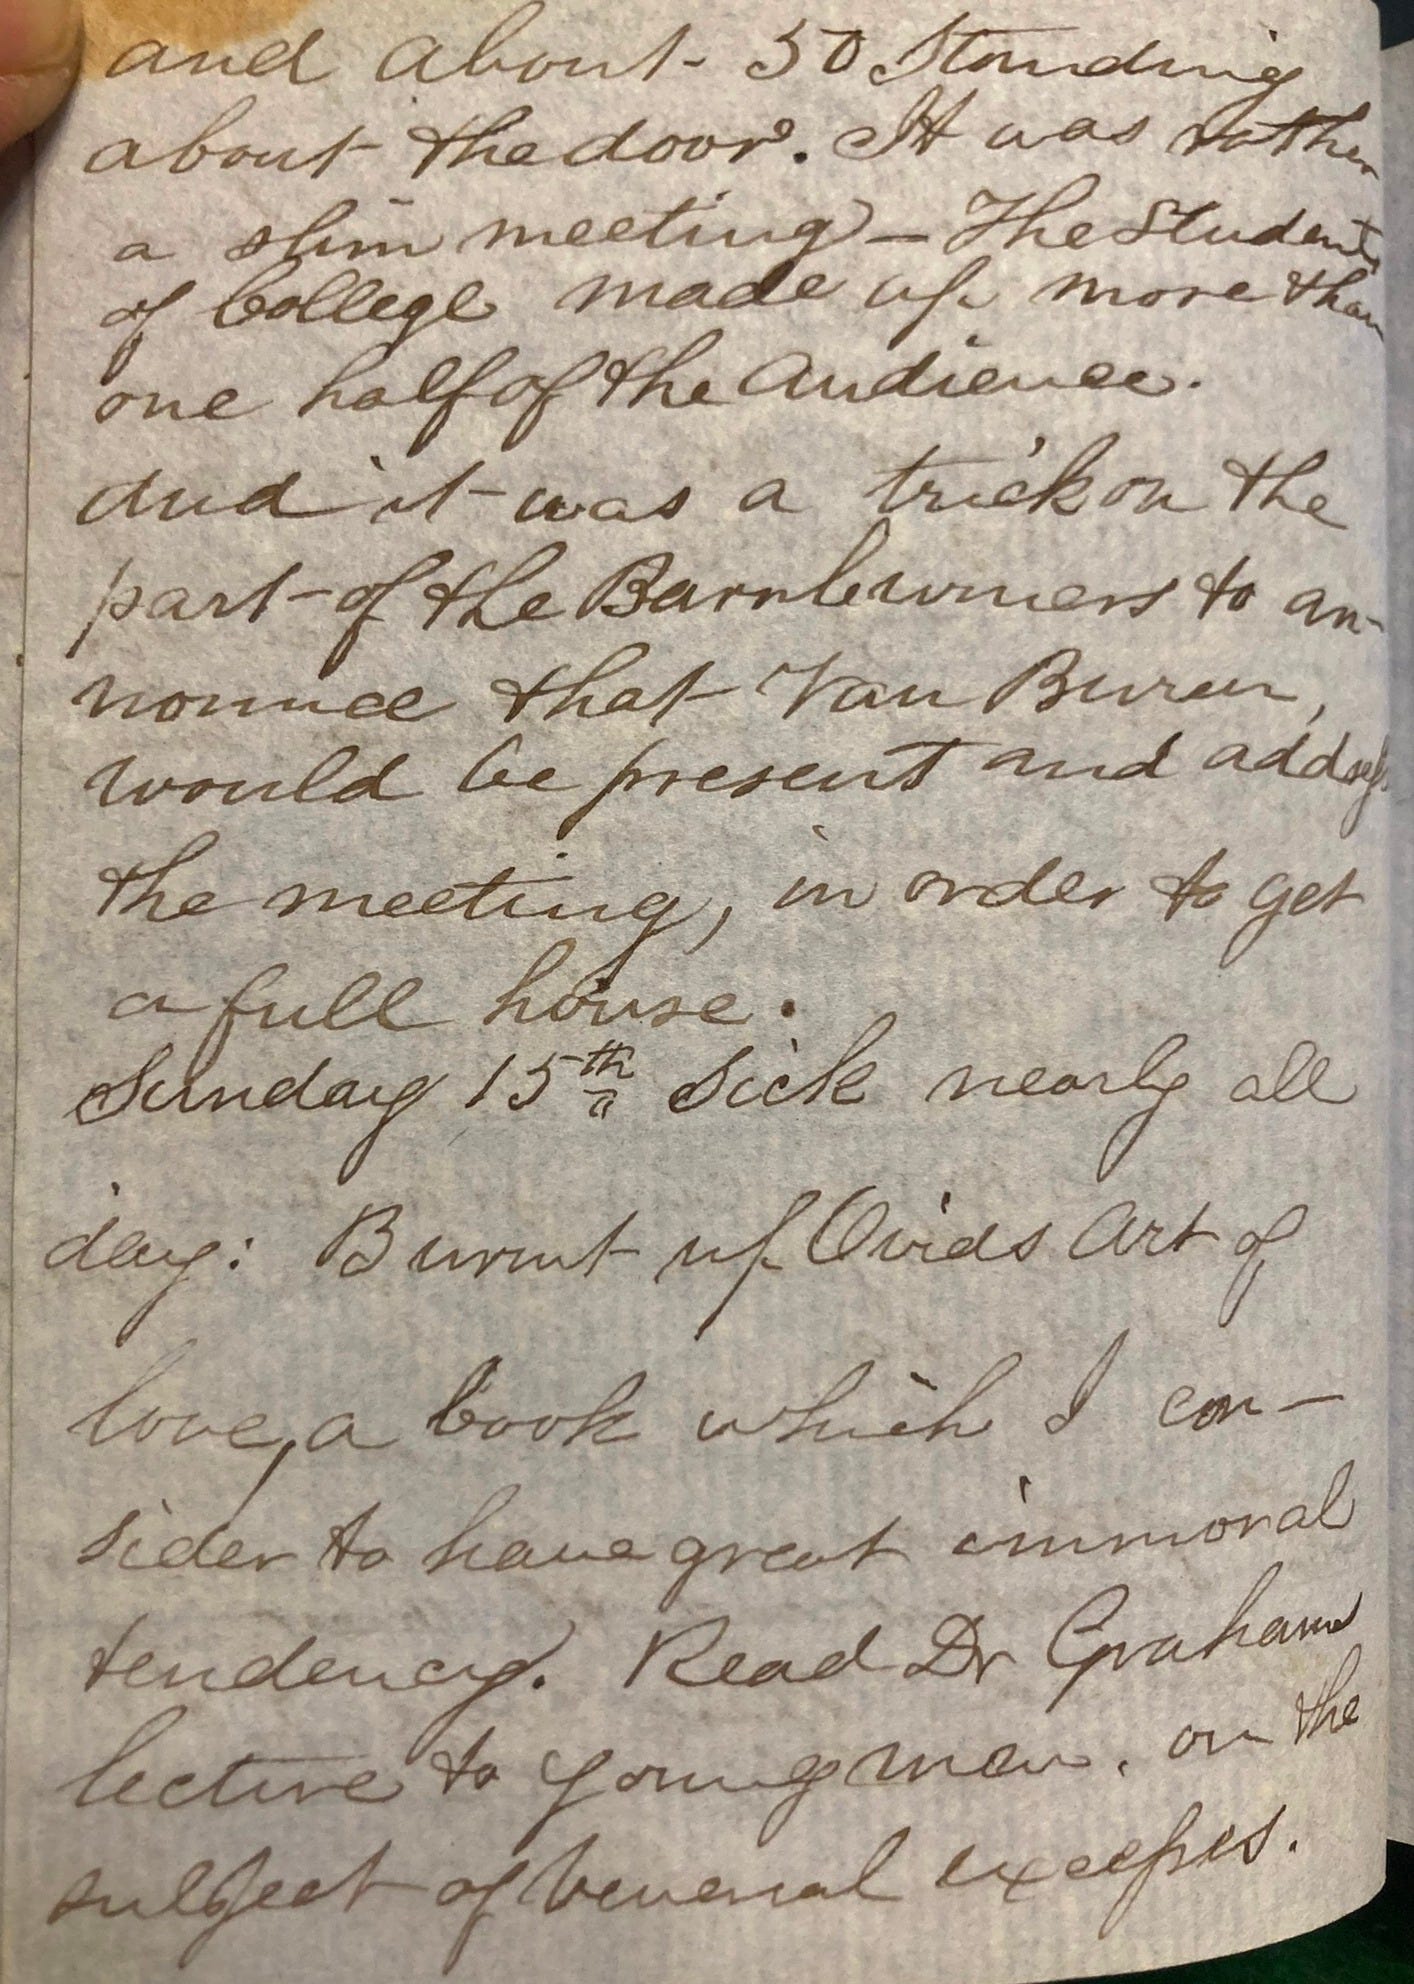 and about 50 Standing
about the door. It was rather
a slim meeting — The Students
of College made up more than
one half of the Audience.
And it was a trick on the
part of the Barnburners to an-
nounce that Van Buren,
would be present and address
the meeting, in order to get
a full house.
Sunday 15th Sick nearly all
day: Burnt up Ovids Art of
love, a book which I con-
sider to have great immoral
tendency. Read Dr Grahams
lecture to young men. on the
subject of venereal excesses.